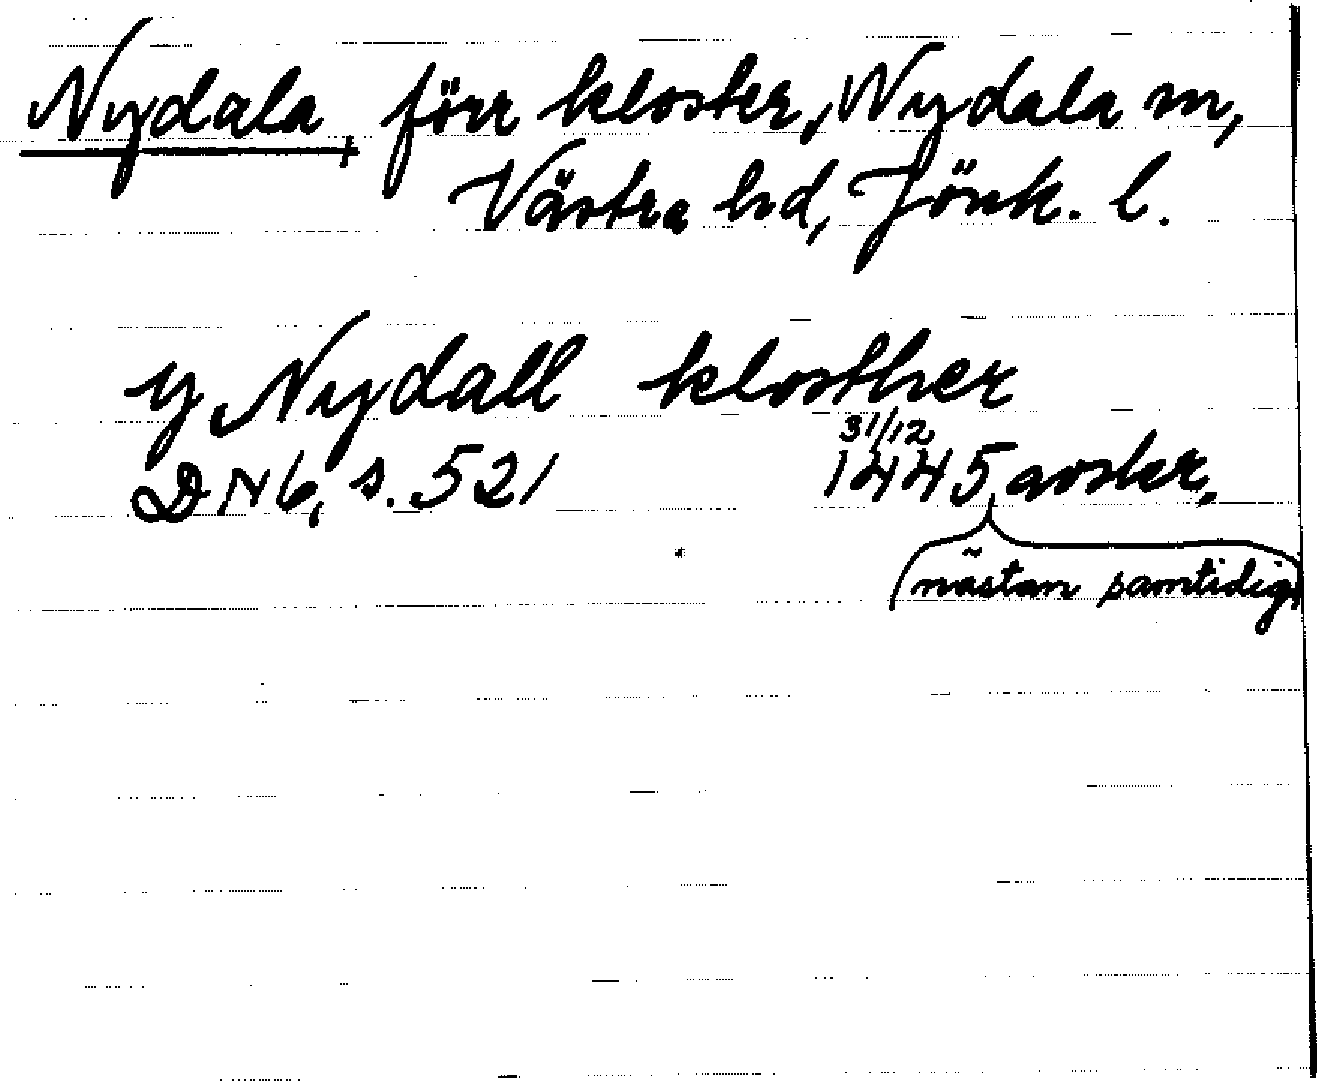 Nydala, förr kloster, Nydala sn,
Västra hd, Jönk. l.
y Nydall kloster
31/12
DN 6, s. 521 1445 avskr.
(nästan samtidig)